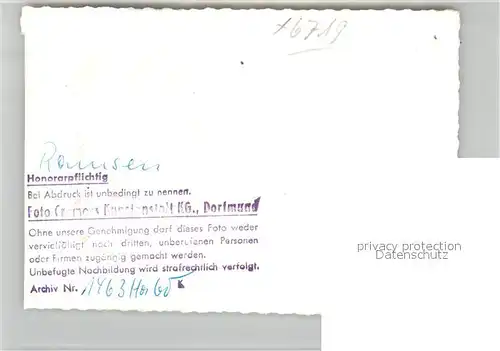 x6719
Ramsen
Honorarpflichtig
Bei Abdruck ist unbedingt zu nennen.
Foto Cramers Kunstanstalt KG., Dortmund
Ohne unsere Genehmigung darf dieses Foto weder
vervielfältigt noch dritten, unberufenen Personen
oder Firmen zugängig gemacht werden.
Unbefugte Nachbildung wird strafrechtlich verfolgt.
Archiv Nr. 1463 K
privacy protection
Datenschutz